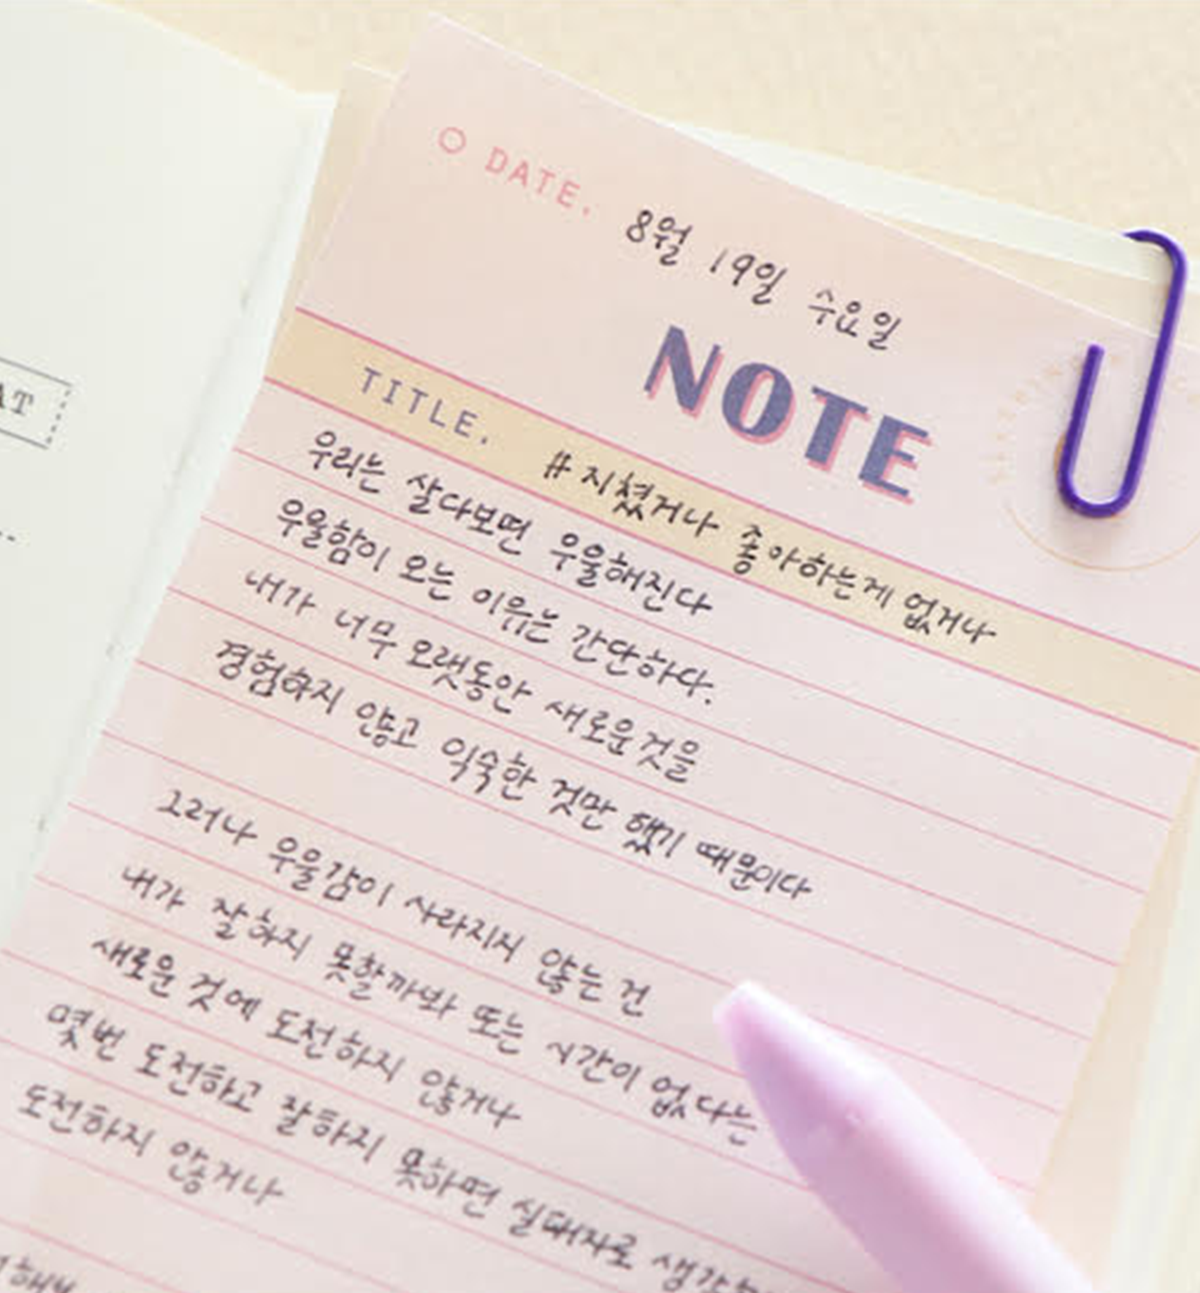 AT
DATE. 8월 19일 수요일
NOTE
TITLE. #지쳤거나 좋아하는게 없거나
우리는 살다보면 우울해진다
우울함이 오는 이유는 간단하다.
내가 너무 오랫동안 새로운것을
경험하지 않고 익숙한 것만 했기 때문이다
그러나 우울감이 사라지지 않는 건
내가 잘하지 못할까봐 또는 시간이 없다는
새로운 것에 도전하지 않거나
몇번 도전하고 잘하지 못하면 실패자로
도전하지 않거나